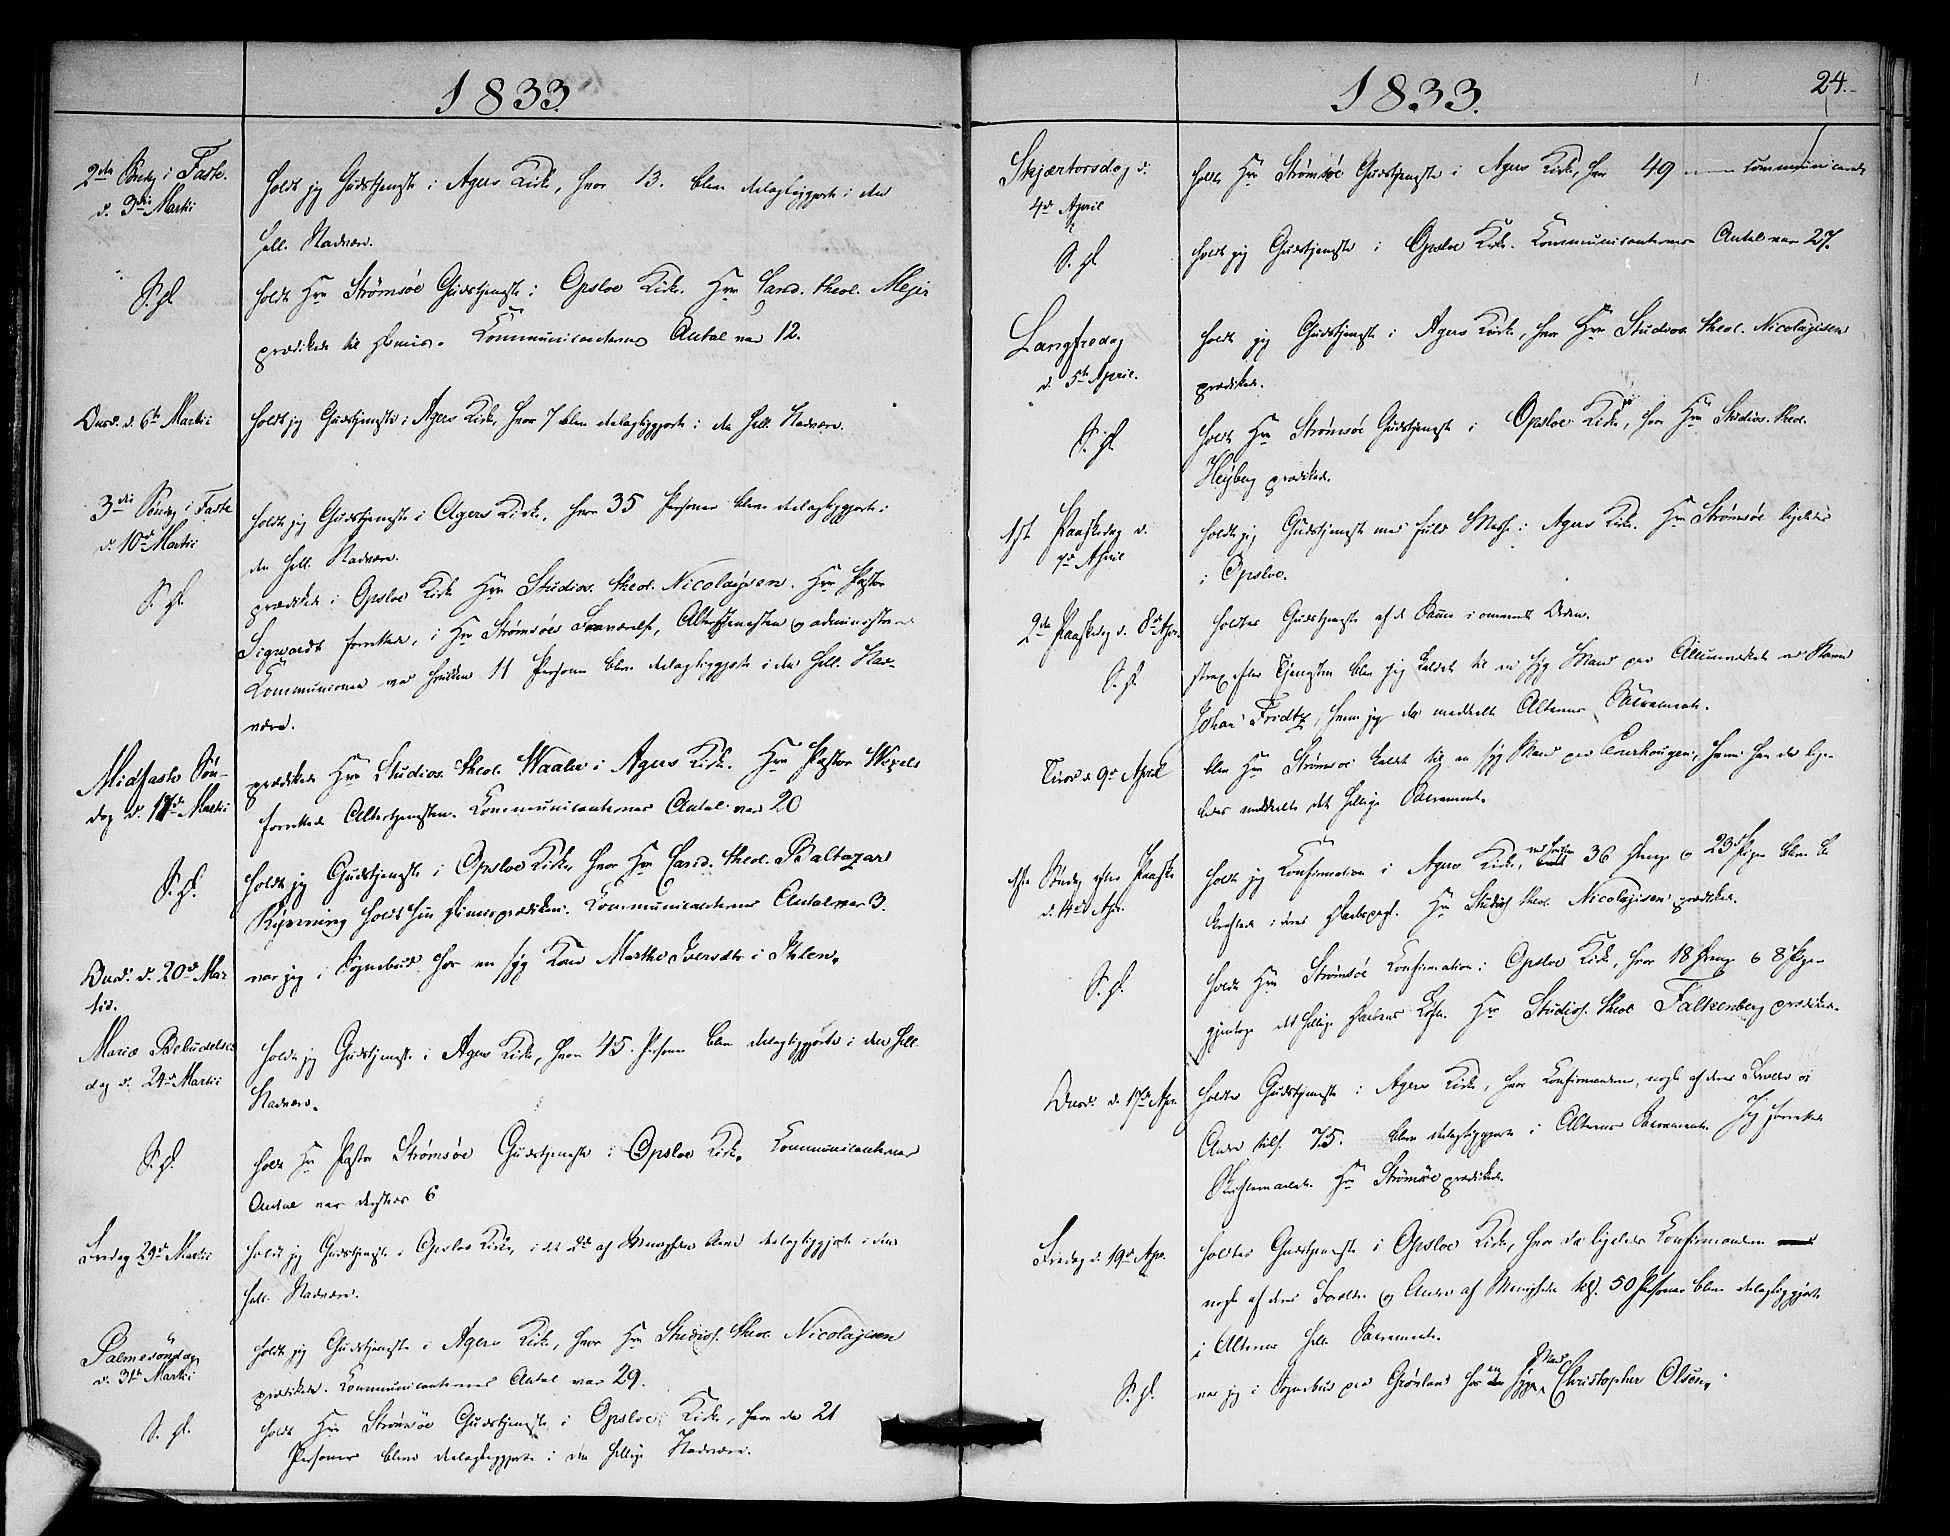 1833.
2den Søndag i Faste.
d. 3die Martii
holdt jeg Gudstjeneste i Agers Kirke, hvor 13. bleve delagtiggjorte i den
hell. Nadvere.
S. D.
holdt Hr. Strømsøe Gudstjeneste i Opsloe Kirke. Hr. Cand. theol. Mejer
prædikede til Communicanternes Antal var 12.
Onsd. d. 6te Martii
holdt jeg Gudstjeneste i Agers Kirke, hvor 7 bleve delagtiggjorte i den hell. Nadvere.
3die Søndag i Faste
d. 10de Martii
holdt jeg Gudstjeneste i Agers Kirke, hvor 35 Personer bleve delagtiggjorte i
den hell. Nadvere.
S. D.
prædikede i Opsloe Kirke Hr. Studios. theol. Nicolaysen. Hr. Pastor
Sigwardt forrettede, i Hr. Strømsøes Fraværelse, Altertjenesten og administrerede
Communionen ved hvilken 11 Personer bleve delagtiggjorte i den hell. Nad-
vere.
Midfaste Søn-
dag d. 17de Martii
prædikede Hr. Studios. theol. Waaler i Agers Kirke. Hr. Pastor Wexels
forrettede Altertjenesten. Communicanternes Antal var 20
S. D.
holdt jeg Gudstjeneste i Opsloe Kirke, hvor Hr. Cand. theol. Baltazar
holdt sin Communicanternes Antal var 3.
Onsd. d. 20de Mar-
tii.
var jeg i Sognebud hos en syg Kone Marthe Iversdtr i
Mariæ Bebudelses
dag d. 24de Martii
holdt jeg Gudstjeneste i Agers Kirke, hvor 45. Personer bleve delagtiggjorte i den hell
Nadvere.
S. D.
holdt Hr. Pastor Strømsøe Gudstjeneste i Opsloe Kirke. Communicanternes
Antal var 6
Fredag 29de Martii
holdt jeg Gudstjeneste i Opsloe Kirke, af Menigheden bleve delagtiggjorte i den
hell. Nadvere.
Palmesøndag
d. 31te Martii
holdt jeg Gudstjeneste i Agers Kirke, hvor Hr. Studios. theol. Nicolaysen
prædikede. Communicanternes Antal var 29.
S. D.
holdt Hr. Strømsøe Gudstjeneste i Opsloe Kirke, hvor der 21
Personer bleve delagtiggjorte i den hellige Nadvere.
1833.
24.
Skjærtorsdag d.
4de April
holdt Hr. Strømsøe Gudstjeneste i Agers Kirke, hvor 49 communicerede
S. D.
holdt jeg Gudstjeneste i Opsloe Kirke. Communicanternes Antal var 27.
Langfredag
d. 5te April.
holdt jeg Gudstjeneste i Agers Kirke, hvor Hr. Studios. theol. Nicolaysen
prædikede.
S. D.
holdt Hr. Strømsøe Gudstjeneste i Opsloe Kirke, hvor Hr. Studios. theol.
Heyberg prædikede.
1ste Paaskedag d.
7de April
holdt jeg Gudstjeneste med fuld Messe i Agers Kirke. Hr. Strømsøe ligeledes
i Opsloe.
2den Paaskedag d. 8de Apr.
holdtes Gudstjeneste af de Samme i omvendt Orden.
S. D.
strax efter Tjenesten blev jeg kaldet til en syg Mand paa ved Navn
Johan Fridtz, hvem jeg da meddeelte Alterens Sacrament.
Tirsd. d. 9de April
blev Hr. Strømsøe kaldet til en syg Mand paa Enerhougen, hvem han da lige-
ledes meddeelte det hellige Sacrament.
1ste Søndag efter Paaske
d. 14de Apr.
holdt jeg Confirmation i Agers Kirke, ved hvilken 36 Drenge og 23 Piger bleve be-
kræftede i deres Daabspagt. Hr. Studios. theol. Nicolaysen prædikede.
S. D.
holdt Hr. Strømsøe Confirmation i Opsloe Kirke, hvor 18 Drenge og 8 Piger
gjentoge det hellige Daabens Løfte. Hr. Studios. theol. Falkenberg prædikede.
Onsd. d. 17de Apr.
holdtes Gudstjeneste i Agers Kirke, hvor Confirmanderne, nogle af deres Forældre og
Andre tils. 75. bleve delagtiggjorte i Alterens Sacrament. Jeg forrettede
Skriftemaalet. Hr. Strømsøe prædikede.
Fredag d. 19de Apr.
holdtes Gudstjeneste i Opsloe Kirke, hvor da ligeledes Confirmanderne
nogle af deres Forældre og Andre af Menigheden tils. 50 Personer bleve delagtiggjorte
i Alterens hell. Sacrament.
S. D.
var jeg i Sognebud paa Grønland hos en syg Mand Christopher Olsen.